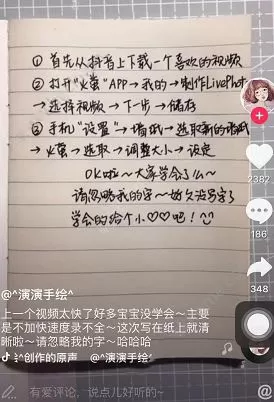 ① 首先从抖音上下载一个喜欢的视频
② 打开"火萤"APP→我的→制作LivePhoto
→选择视频→下一步→储存
③ 手机"设置"→墙纸→选取新的墙纸
→火萤→选取→调整大小→设定
OK啦~大家学会了么~
请忽略我的字~好久没写字了
学会的给个小♡♡吧！
2382
186
348
@^演演手绘^
上一个视频太快了好多宝宝没学会~主要
是不加快速度录不全~这次写在纸上就清
晰啦~请忽略我的字~哈哈哈
^创作的原声 @^演演手绘^
有爱评论，说点儿好听的~